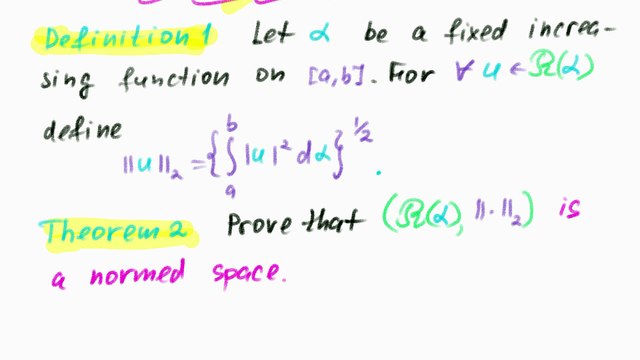 Definition 1 Let α be a fixed increa-
sing function on [a,b]. For ∀ u ∈ ℛ(α)
define
||u||₂ = { ∫ₐᵇ |u|² dα }^{1/2}.
Theorem 2 Prove that (ℛ(α), ||·||₂) is
a normed space.